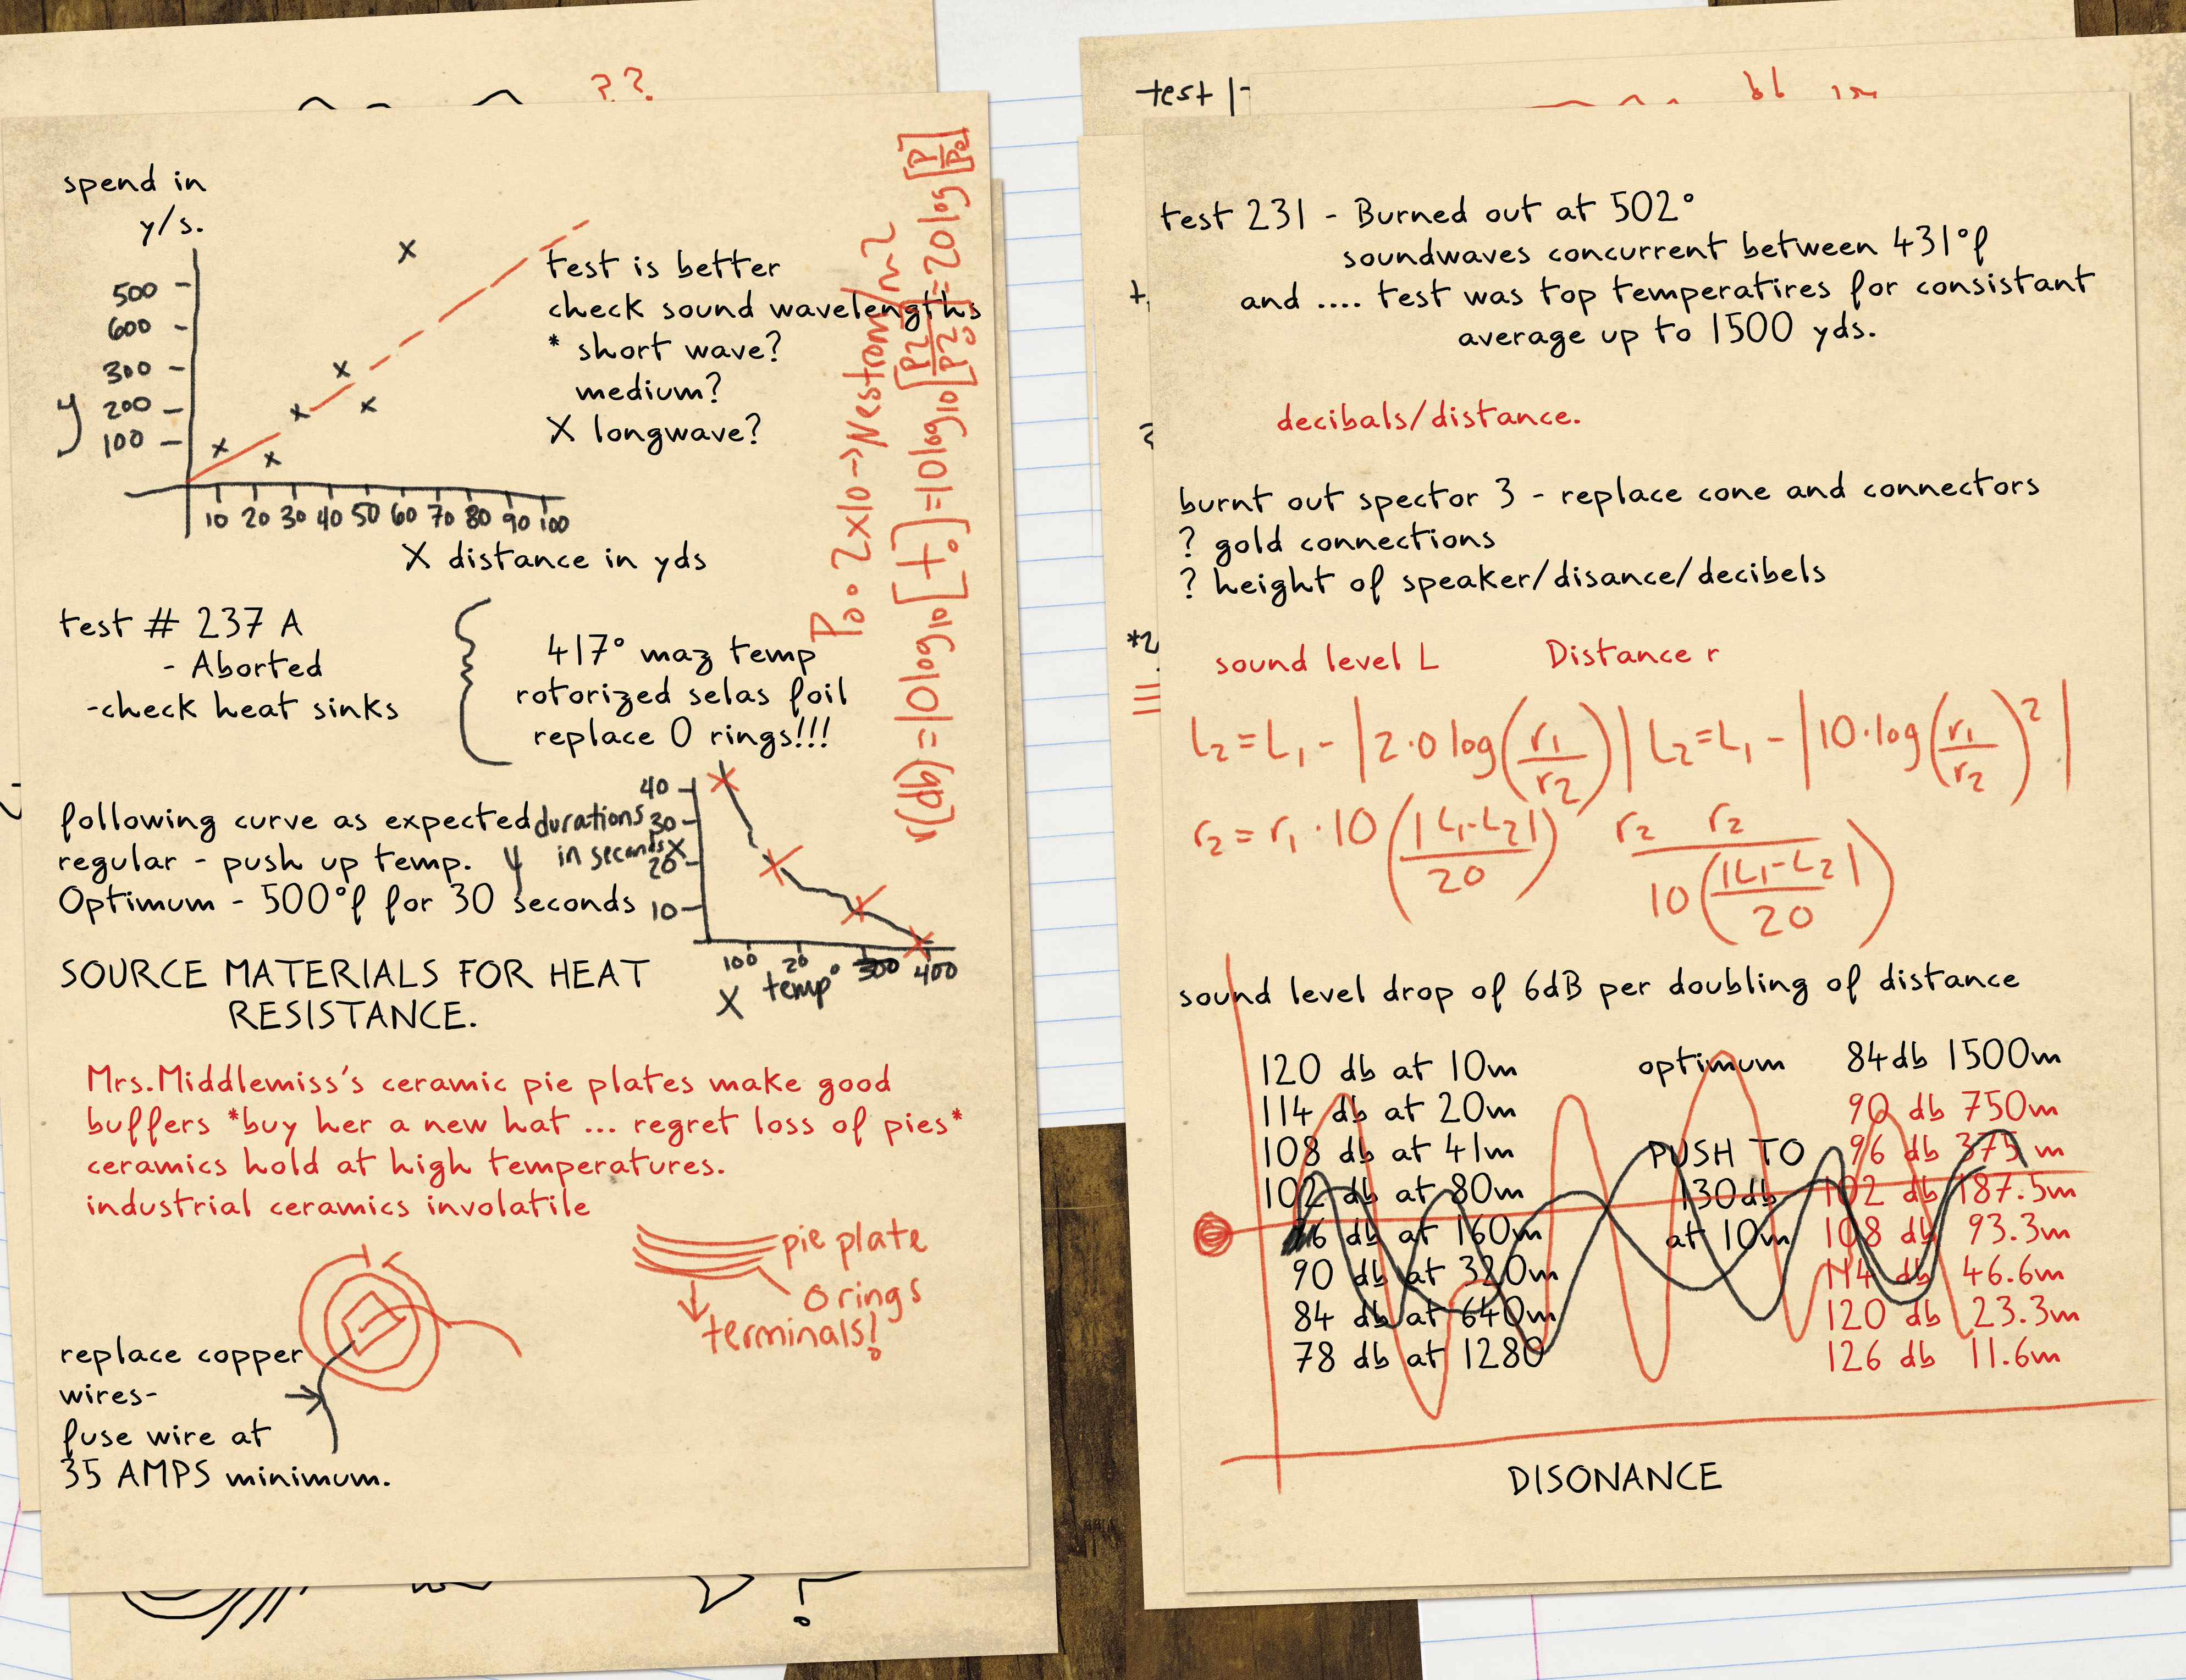 ??
spend in
y/s.
500
600
300
200
100
y
10 20 30 40 50 60 70 80 90 100
X distance in yds
test is better
check sound wavelengths
* short wave?
medium?
X longwave?
test # 237 A
- Aborted
-check heat sinks
417° maz temp
rotorized selas foil
replace O rings!!!
following curve as expected
regular - push up temp.
Optimum - 500°f for 30 seconds
y durations
in seconds X
40
30
20
10
100 20 300 400
X temp°
SOURCE MATERIALS FOR HEAT
RESISTANCE.
Mrs.Middlemiss's ceramic pie plates make good
buffers *buy her a new hat ... regret loss of pies*
ceramics hold at high temperatures.
industrial ceramics involatile
pie plate
O rings
terminals!
replace copper
wires-
fuse wire at
35 AMPS minimum.
test
test 231 - Burned out at 502°
soundwaves concurrent between 431°f
and .... test was top temperatires for consistant
average up to 1500 yds.
decibals/distance.
burnt out spector 3 - replace cone and connectors
? gold connections
? height of speaker/disance/decibels
sound level L Distance r
L2=L1-|2·0log(r1/r2)| L2=L1-|10·log(r1/r2)²|
r2=r1·10(|L1-L2|/20) r2 r2/10(|L1-L2|/20)
sound level drop of 6dB per doubling of distance
120 db at 10m
114 db at 20m
108 db at 41m
102 db at 80m
6 db at 160m
90 db at 320m
84 db at 640m
78 db at 1280
optimum
PUSH TO
130db
at 10m
84db 1500m
90 db 750m
96 db 375 m
102 db 187.5m
108 db 93.3m
114 db 46.6m
120 db 23.3m
126 db 11.6m
DISONANCE